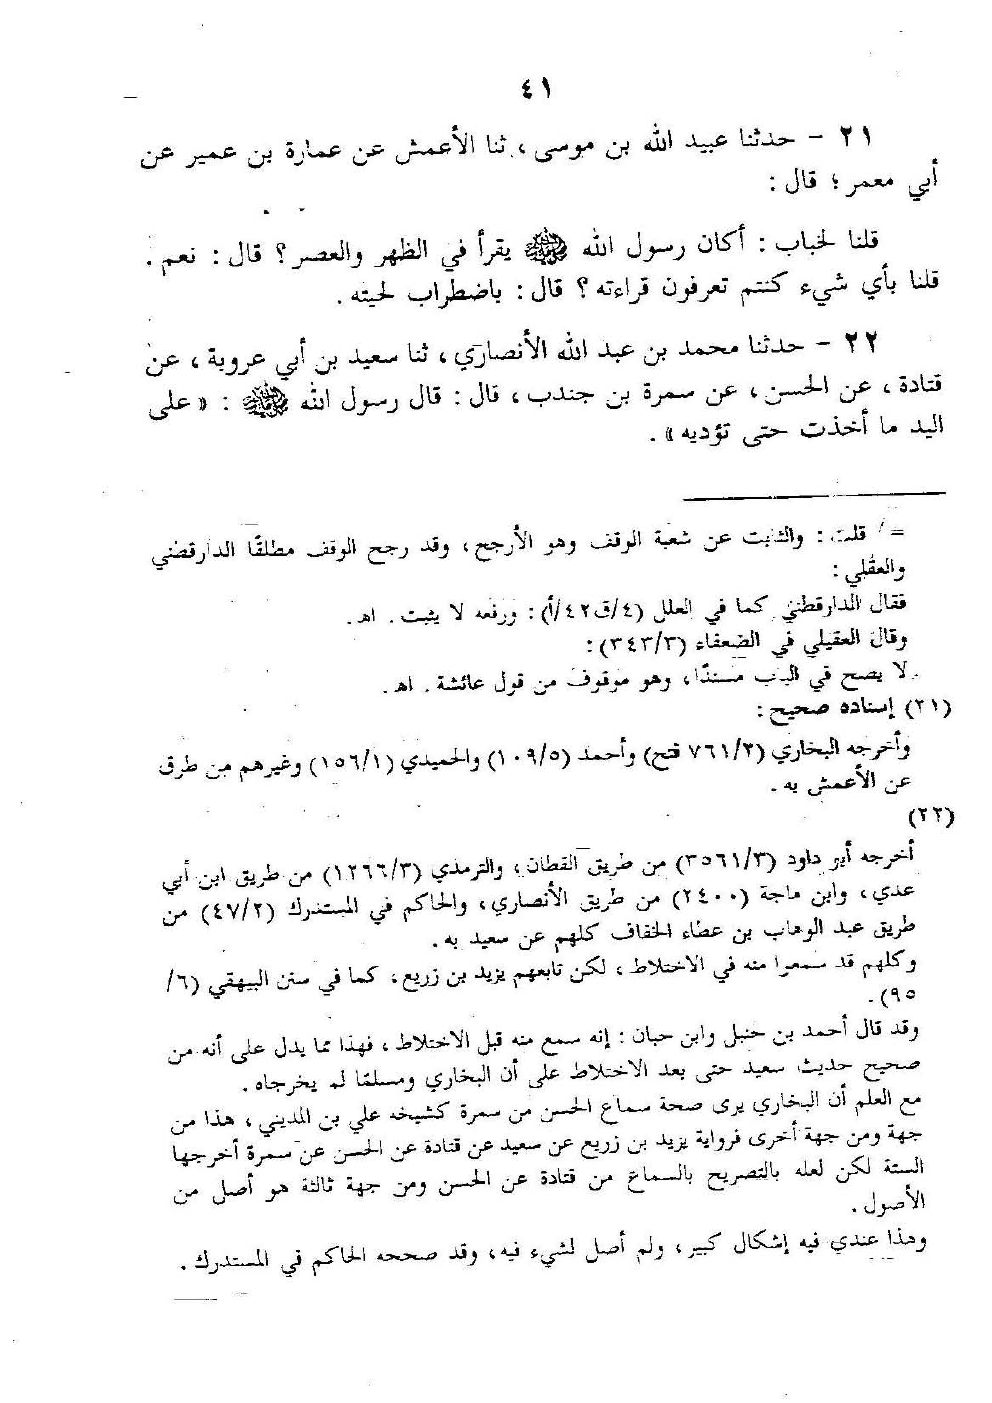 ٤١
٢١ - حدثنا عبيد الله بن موسى ، ثنا الأعمش عن عمارة بن عمير عن
أبي معمر ؛ قال :
قلنا لخباب : أكان رسول الله ﷺ يقرأ في الظهر والعصر ؟ قال : نعم .
قلنا بأي شيء كنتم تعرفون قراءته ؟ قال : باضطراب لحيته .
٢٢ - حدثنا محمد بن عبد الله الأنصاري ، ثنا سعيد بن أبي عروبة ، عن
قتادة ، عن الحسن ، عن سمرة بن جندب ، قال : قال رسول الله ﷺ : « على
اليد ما أخذت حتى تؤديه » .
= قلت : والثابت عن شعبة الوقف وهو الأرجح ، وقد رجح الوقف مطلقًا الدارقطني
والعقيلي :
فقال الدارقطني كما في العلل (٤/ق٤٢/أ) : ورفعه لا يثبت . اهـ .
وقال العقيلي في الضعفاء (٣٤٣/٣) :
لا يصح في الباب مسندًا ، وهو موقوف من قول عائشة . اهـ .
(٢١) إسناده صحيح :
وأخرجه البخاري (٧٦١/٢ فتح) وأحمد (١٠٩/٥) والحميدي (١٥٦/١) وغيرهم من طرق
عن الأعمش به .
(٢٢)
أخرجه أبو داود (٣٥٦١/٣) من طريق القطان ، والترمذي (١٢٦٦/٣) من طريق ابن أبي
عدي ، وابن ماجة (٢٤٠٠) من طريق الأنصاري ، والحاكم في المستدرك (٤٧/٢) من
طريق عبد الوهاب بن عطاء الخفاف كلهم عن سعيد به .
وكلهم قد سمعوا منه في الاختلاط ، لكن تابعهم يزيد بن زريع ، كما في سنن البيهقي (٦/
٩٥) .
وقد قال أحمد بن حنبل وابن حبان : إنه سمع منه قبل الاختلاط ، فهذا مما يدل على أنه من
صحيح حديث سعيد حتى بعد الاختلاط على أن البخاري ومسلمًا لم يخرجاه .
مع العلم أن البخاري يرى صحة سماع الحسن من سمرة كشيخه علي بن المديني ، هذا من
جهة ومن جهة أخرى فرواية يزيد بن زريع عن سعيد عن قتادة عن الحسن عن سمرة أخرجها
الستة لكن لعله بالتصريح بالسماع من قتادة عن الحسن ومن جهة ثالثة هو أصل من
الأصول .
وهذا عندي فيه إشكال كبير ، ولم أصل لشيء فيه ، وقد صححه الحاكم في المستدرك .